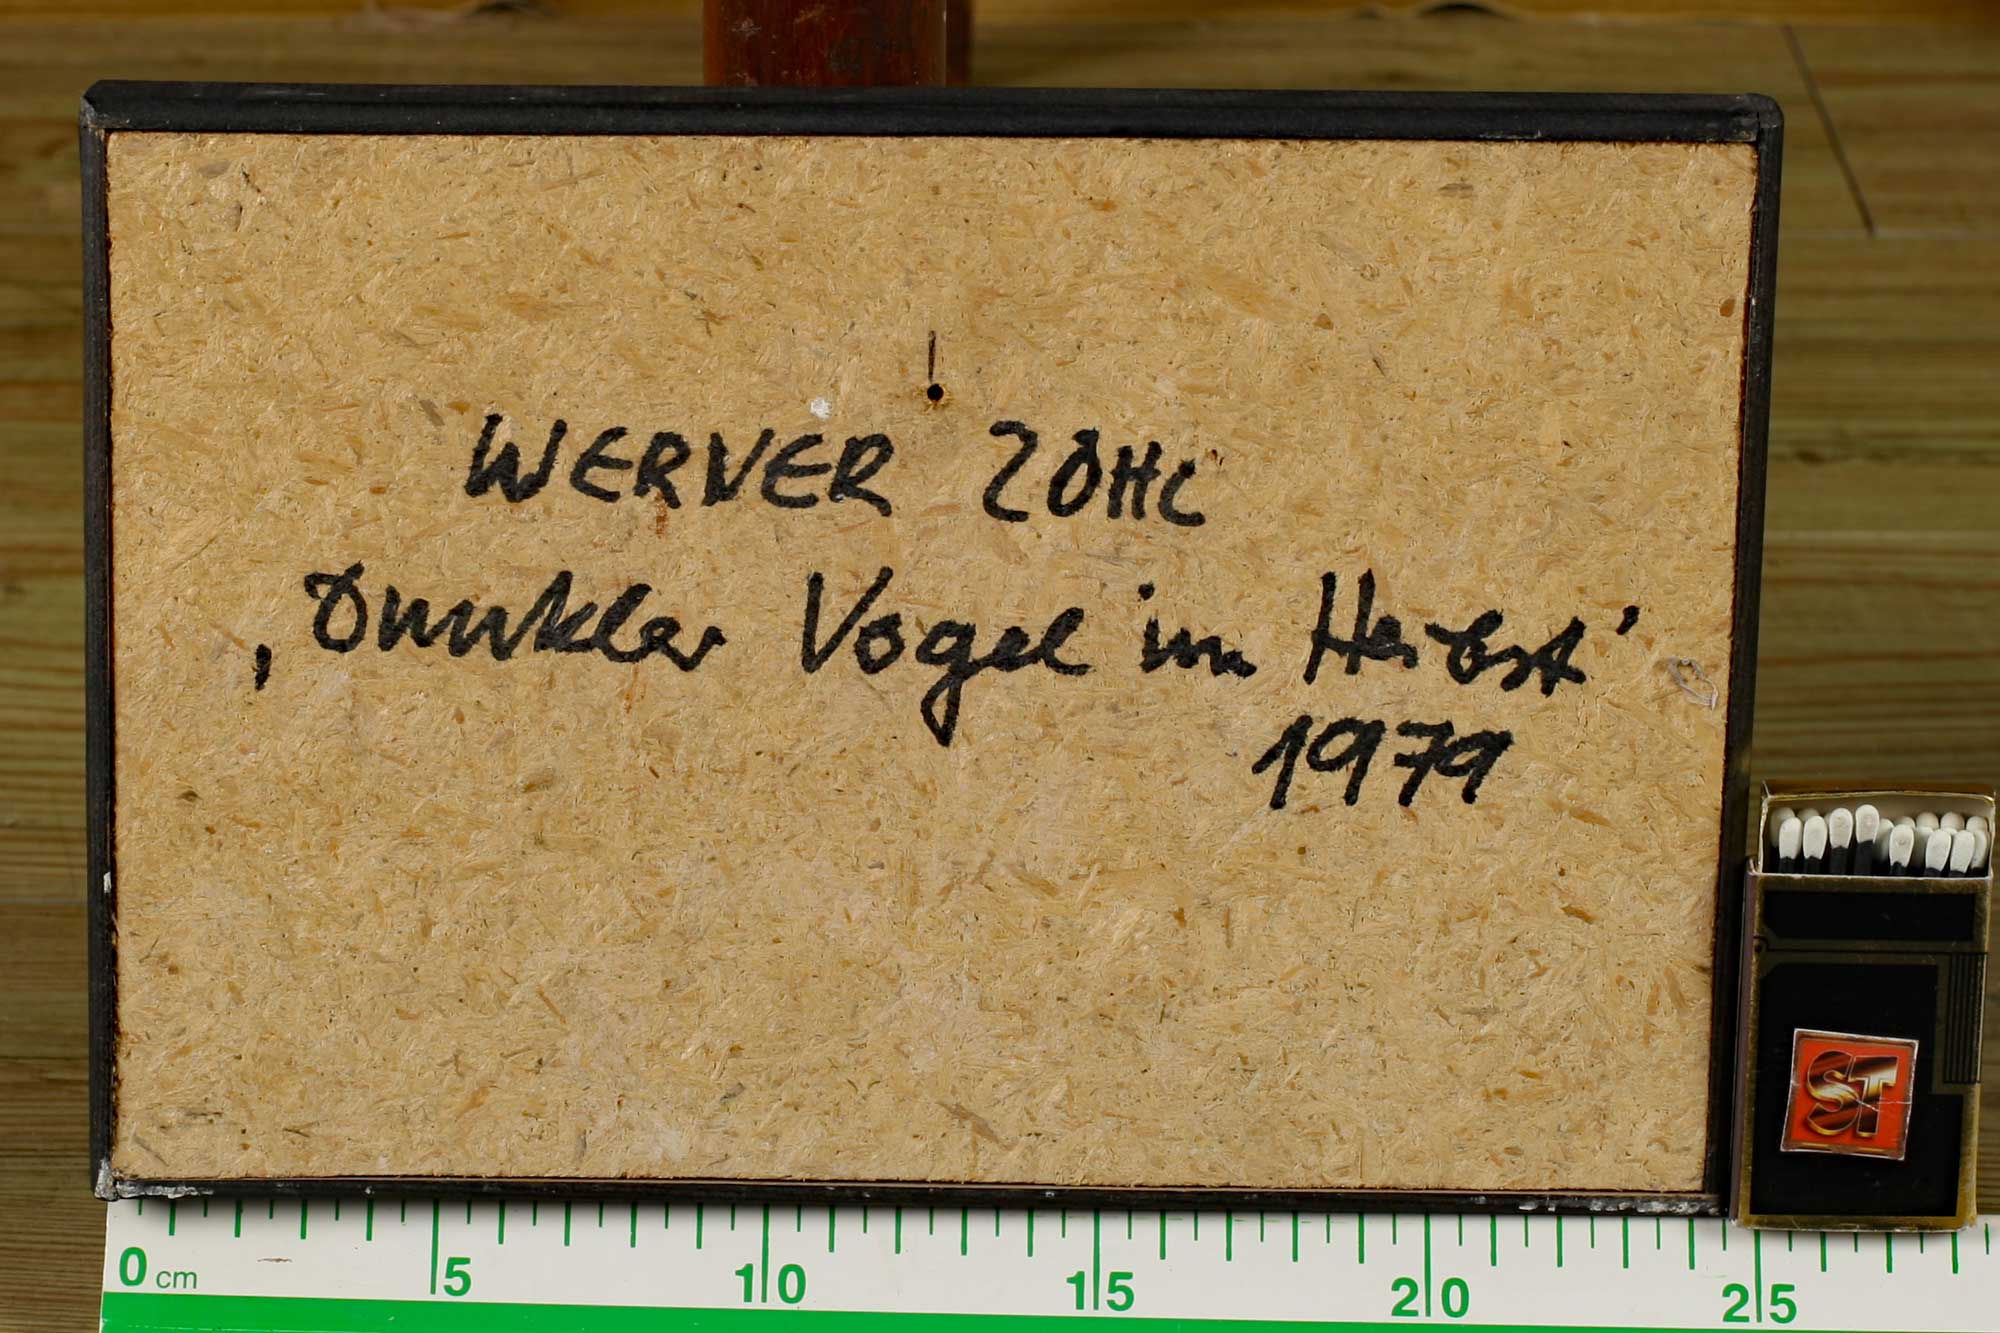 WERNER ZÖHL
‚Dunkler Vogel im Herbst'
1979
ST
0 cm 5 10 15 20 25